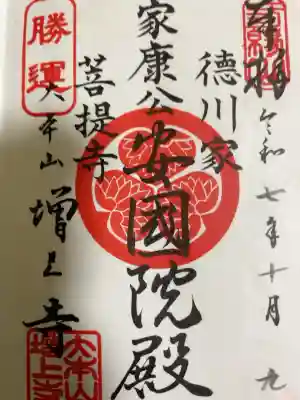 奉拝
令和七年十月九
徳川家
家康公安國院殿
菩提寺
勝運
大本山増上寺
大本山
増上寺